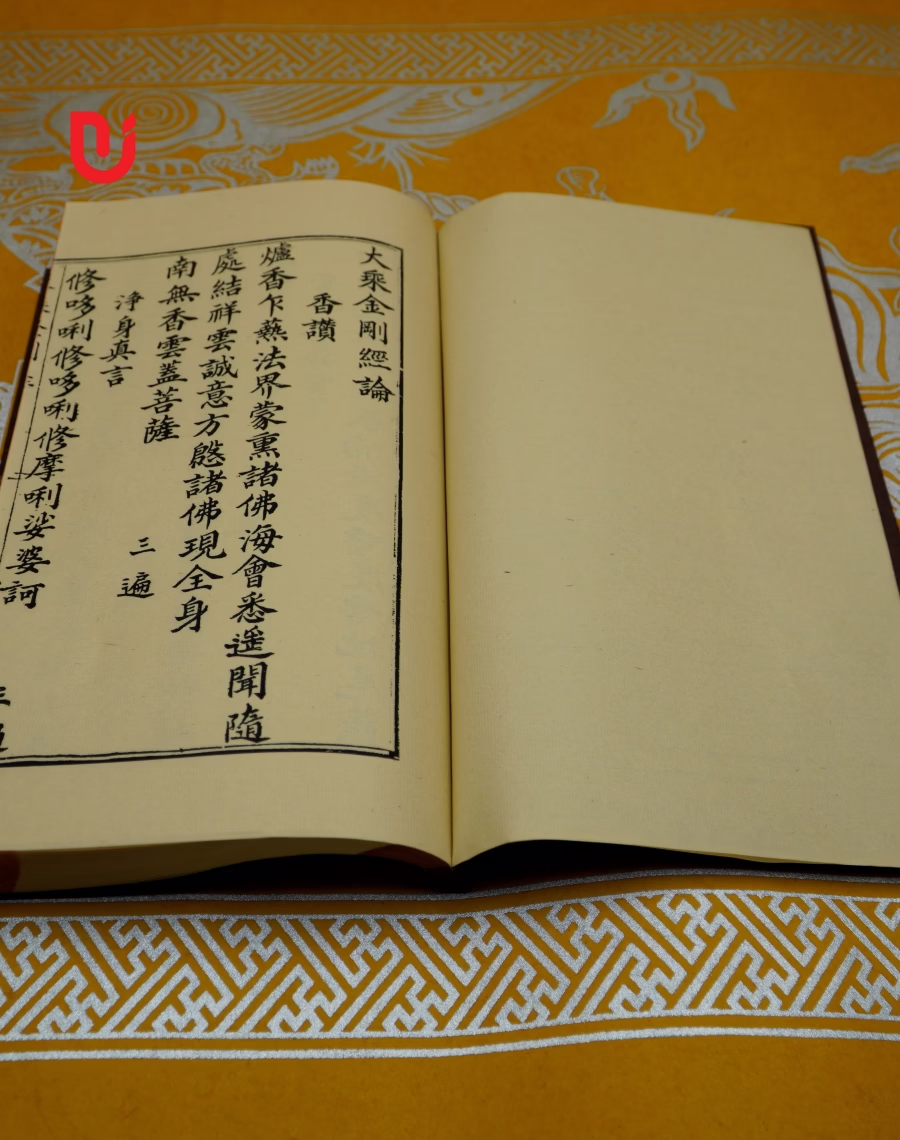 大乘金剛經論
香讚
爐香乍爇法界蒙熏諸佛海會悉遥聞隨
處結祥雲誠意方慇諸佛現全身
南無香雲蓋菩薩 三遍
淨身真言
修哆唎修哆唎修摩唎娑婆訶